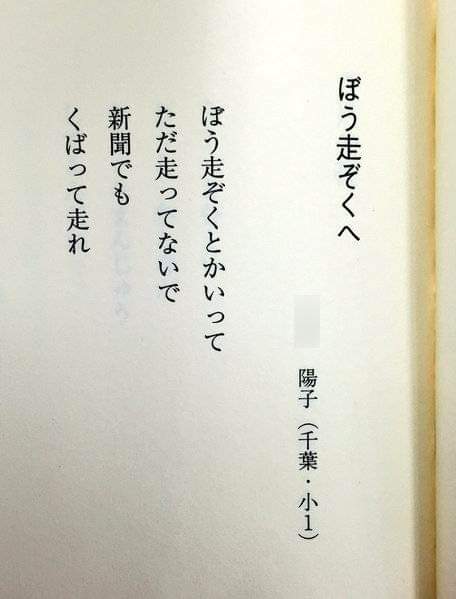 ぼう走ぞくへ
陽子（千葉・小１）
ぼう走ぞくとかいって
ただ走ってないで
新聞でも
くばって走れ